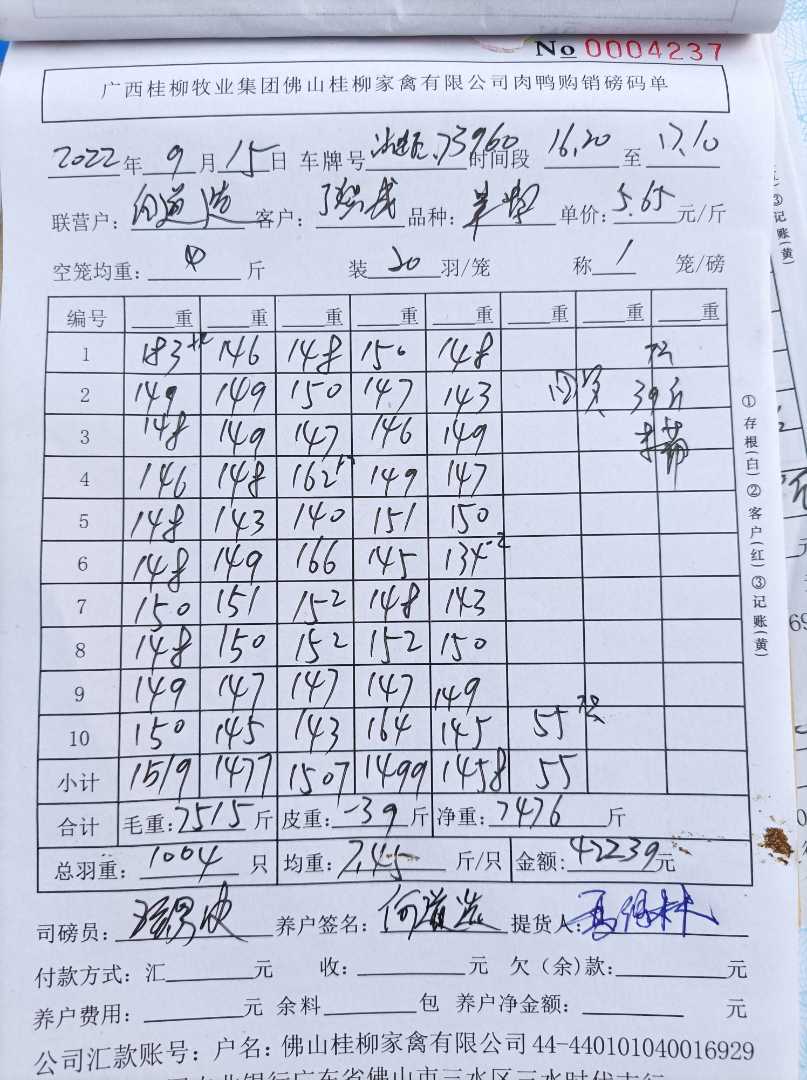 No 0004237
广西桂柳牧业集团佛山桂柳家禽有限公司肉鸭购销磅码单
2022年9月15日 车牌号 73960 时间段 16.20 至 17.10
联营户: 何道浩 客户: 品种: 单价: 5.65元/斤
空笼均重: 斤 装20羽/笼 称1笼/磅
编号 重 重 重 重 重 重 重 重
1 183 146 148 150 148
2 149 149 150 147 143 39斤
3 148 149 147 146 149
4 146 148 162 149 147
5 148 143 140 151 150
6 148 149 166 145 134-2
7 150 151 152 148 143
8 148 150 152 152 150
9 149 147 147 147 149
10 150 145 143 164 145 55
小计 1519 1477 1507 1499 1458 55
合计 毛重: 7515斤 皮重: -39斤 净重: 7476斤
总羽重: 1004只 均重: 7.45斤/只 金额: 42239元
司磅员: 养户签名: 提货人:
付款方式: 汇 元 收: 元 欠(余)款: 元
养户费用: 元 余料 包 养户净金额: 元
公司汇款账号: 户名: 佛山桂柳家禽有限公司 44-440101040016929
①存根(白)②客户(红)③记账(黄)
③记账(黄)